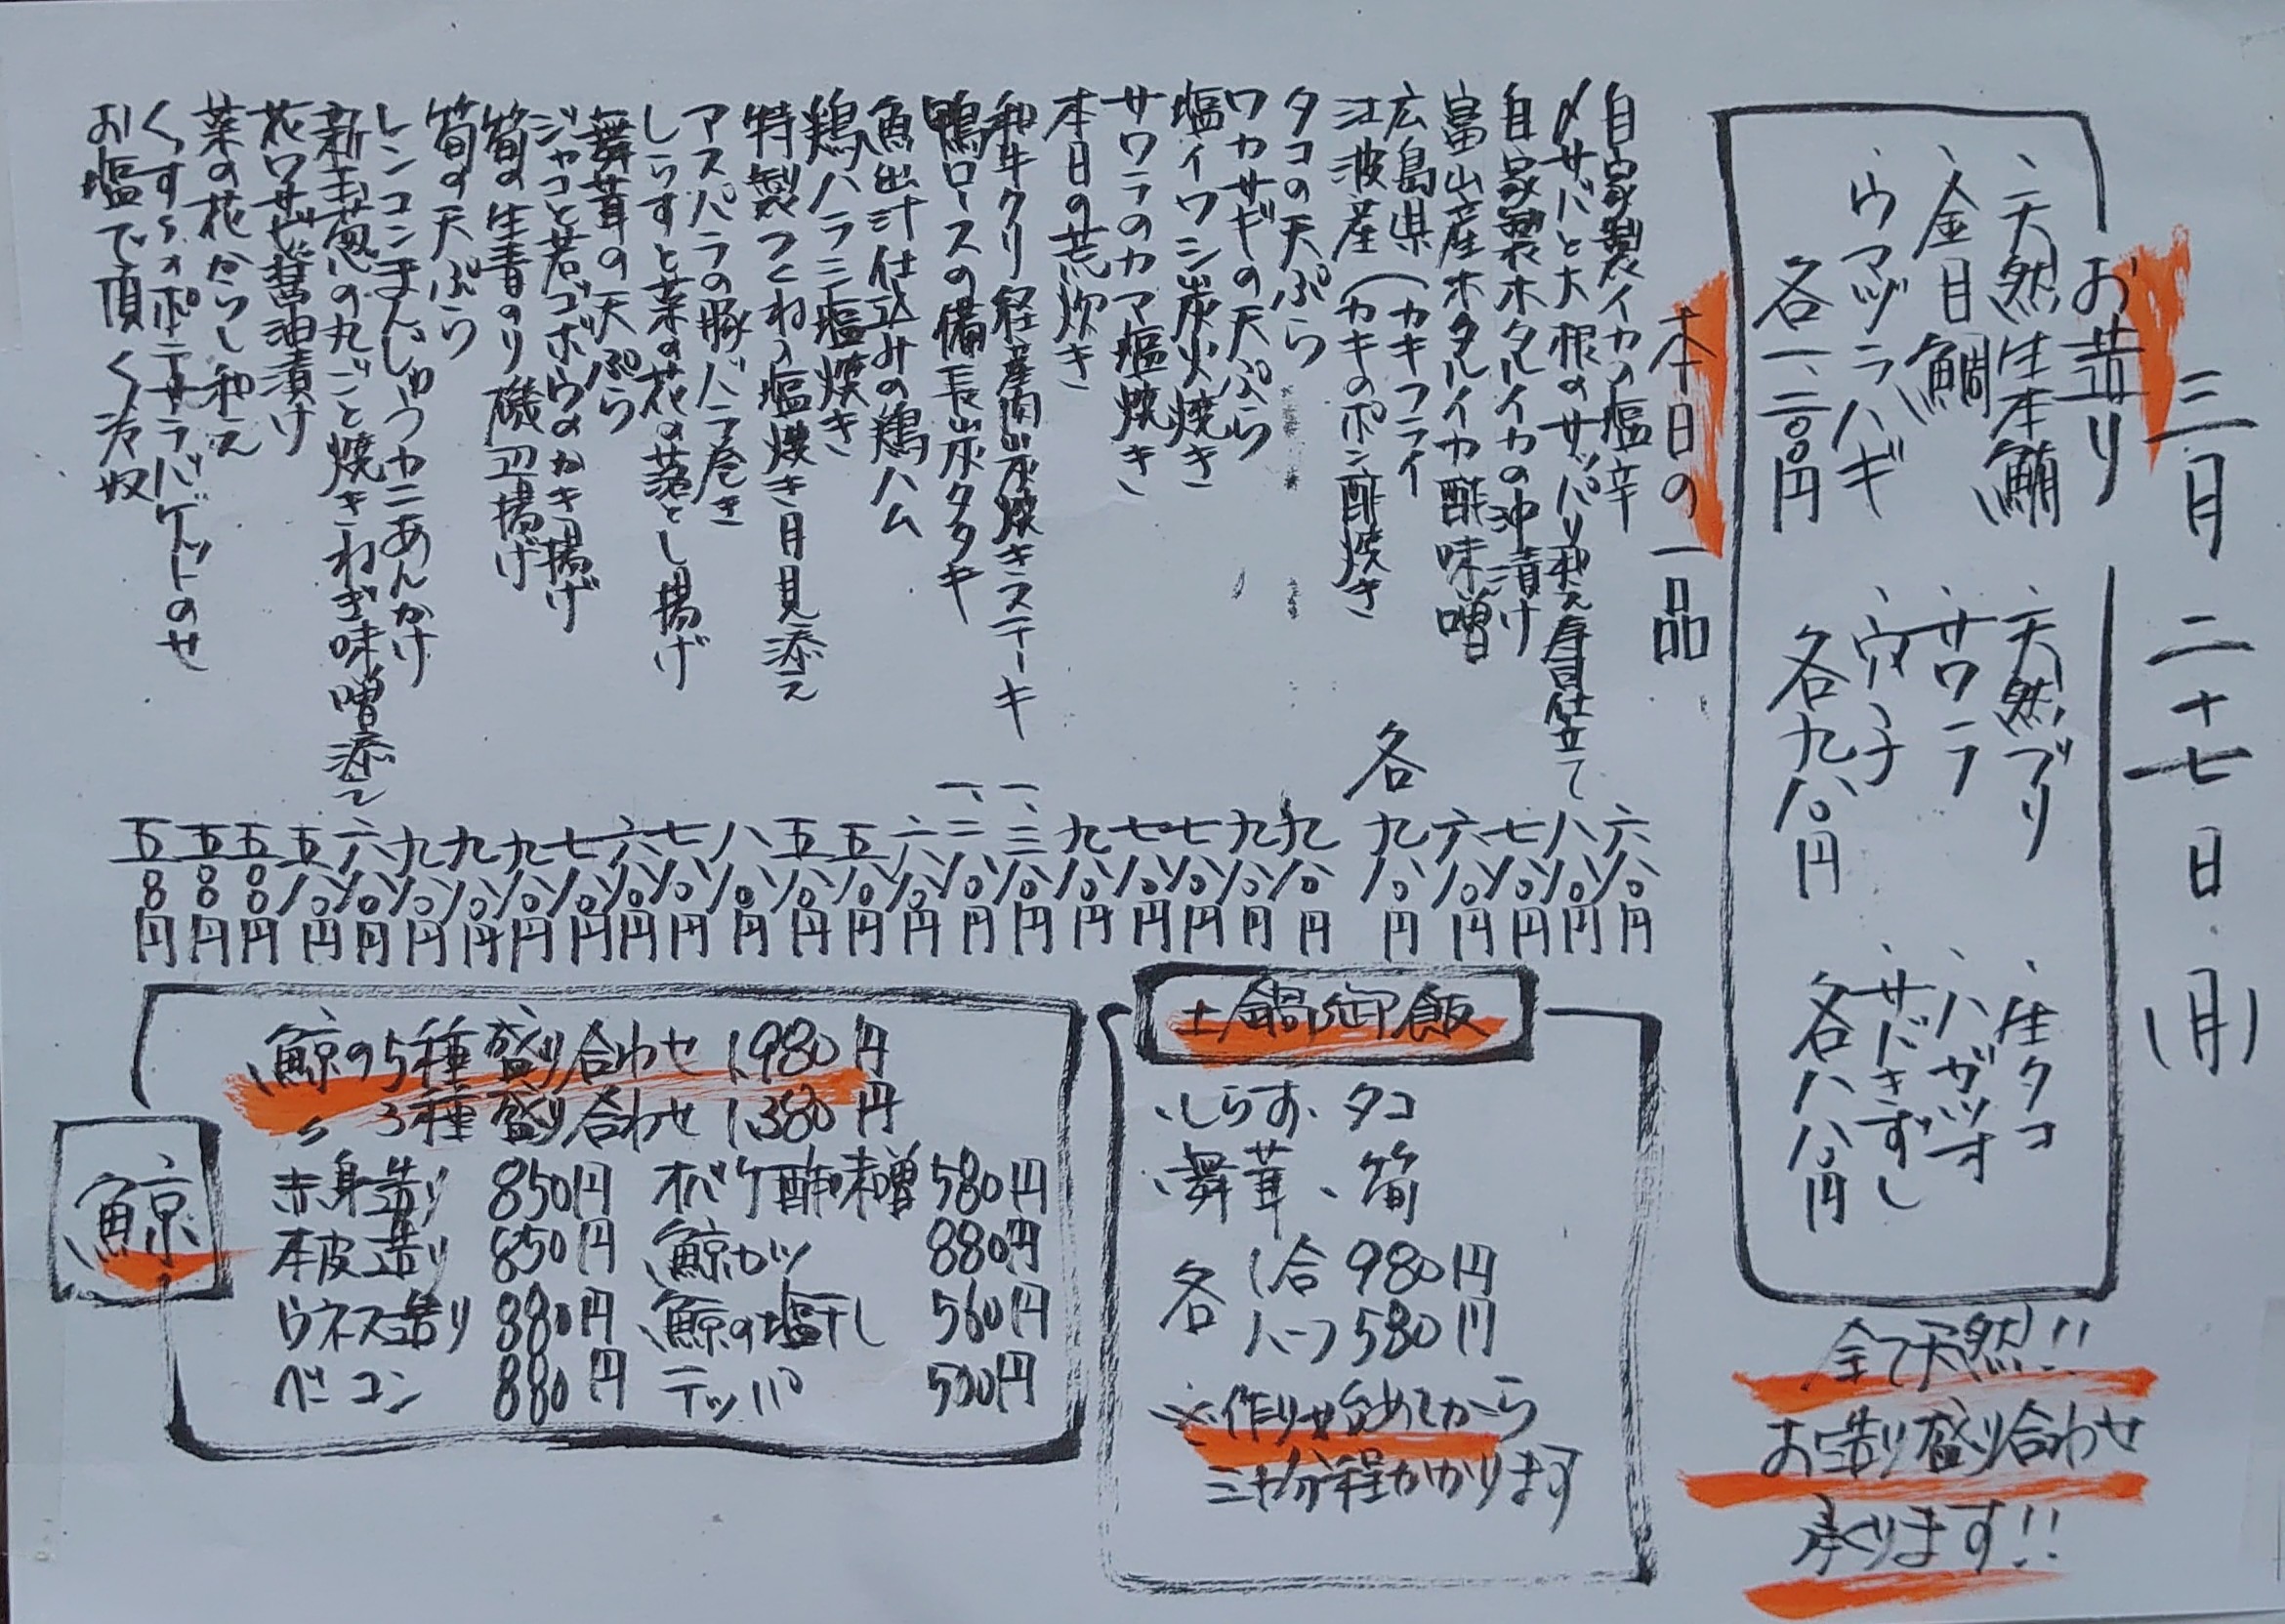 三月二十七日(月)
お造り
、天然生本鮪
、金目鯛
、ウマヅラハギ
各一、二〇〇円
、天然ブリ
、サワラ
、穴子
各九八〇円
、生タコ
、ハガツオ
、サバきずし
各八八〇円
全て天然!!
お造り盛り合わせ
承ります!!
本日の一品
自家製イカの塩辛 六八〇円
〆サバと大根のサッパリ和え寿司仕立て 八八〇円
自家製ホタルイカの沖漬け 七八〇円
富山産ホタルイカ酢味噌 六八〇円
広島県(カキフライ
江波産(カキのポン酢焼き
各九八〇円
タコの天ぷら 九八〇円
ワカサギの天ぷら 九八〇円
塩イワシ炭火焼き 七八〇円
サワラのカマ塩焼き 七八〇円
本日の荒炊き 九八〇円
和牛クリ経産肉炭焼きステーキ 一、三八〇円
鴨ロースの備長炭タタキ 一、二八〇円
魚出汁仕込みの鶏ハム 六八〇円
鶏ハラミ塩焼き 五八〇円
特製つくねの塩焼き月見添え 五八〇円
アスパラの豚バラ巻き 八八〇円
しらすと菜の花の落とし揚げ 七八〇円
舞茸の天ぷら 六八〇円
ジャコと若ゴボウのかき揚げ 七八〇円
筍の生青のり磯辺揚げ 九八〇円
筍の天ぷら 九八〇円
レンコンまんじゅうカニあんかけ 九八〇円
新玉葱の丸ごと焼きねぎ味噌添え 六八〇円
花ワサビ醤油漬け 五八〇円
菜の花からし和え 五〇〇円
くんすらのポテサラバゲットのせ 五〇〇円
お塩で頂く冷奴 五〇〇円
土鍋御飯
、しらす、タコ
、舞茸、筍
各 1合980円
ハーフ580円
※作り始めてから
三十分程かかります
鯨
鯨の5種盛り合わせ 1,980円
〃 3種盛り合わせ 1,380円
赤身造り 850円 オバケ酢味噌 580円
本皮造り 850円 鯨カツ 880円
ウネス造り 880円 鯨の塩干し 560円
ベーコン 880円 テッパ 500円